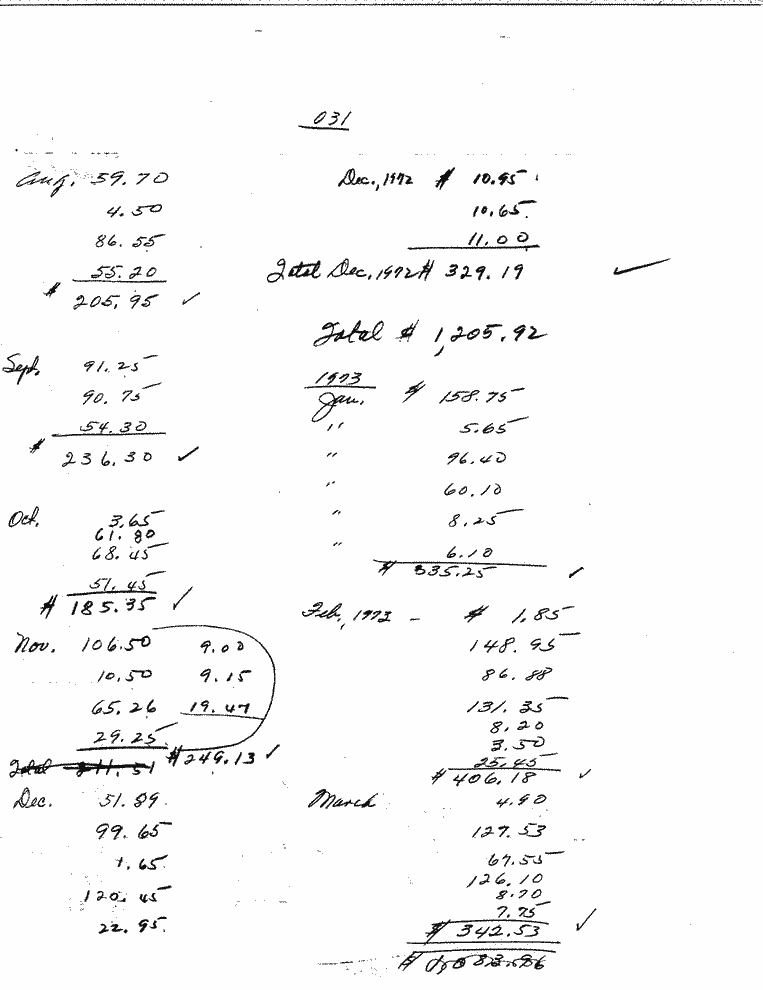 031
Aug. 59.70
4.50
86.55
55.20
$ 205.95 ✓
Sept. 91.25
90.75
54.30
$ 236.30 ✓
Oct. 3.65
61.80
68.45
51.45
$ 185.35 ✓
Nov. 106.50 9.00
10.50 9.15
65.26 19.47
29.25
Total 211.51 $249.13 ✓
Dec. 51.89
99.65
1.65
120.45
22.95
Dec., 1972 $ 10.95
10.65
11.00
Total Dec, 1972 $ 329.19 ✓
Total $ 1,205.92
1973
Jan. $ 158.75
" 5.65
" 96.40
" 60.10
" 8.25
" 6.10
$ 335.25 ✓
Feb., 1973 - $ 1.85
148.95
86.88
131.35
8.20
3.50
25.45
$ 406.18 ✓
March 4.90
127.53
67.55
126.10
8.70
7.75
$ 342.53 ✓
$ 1,083.96